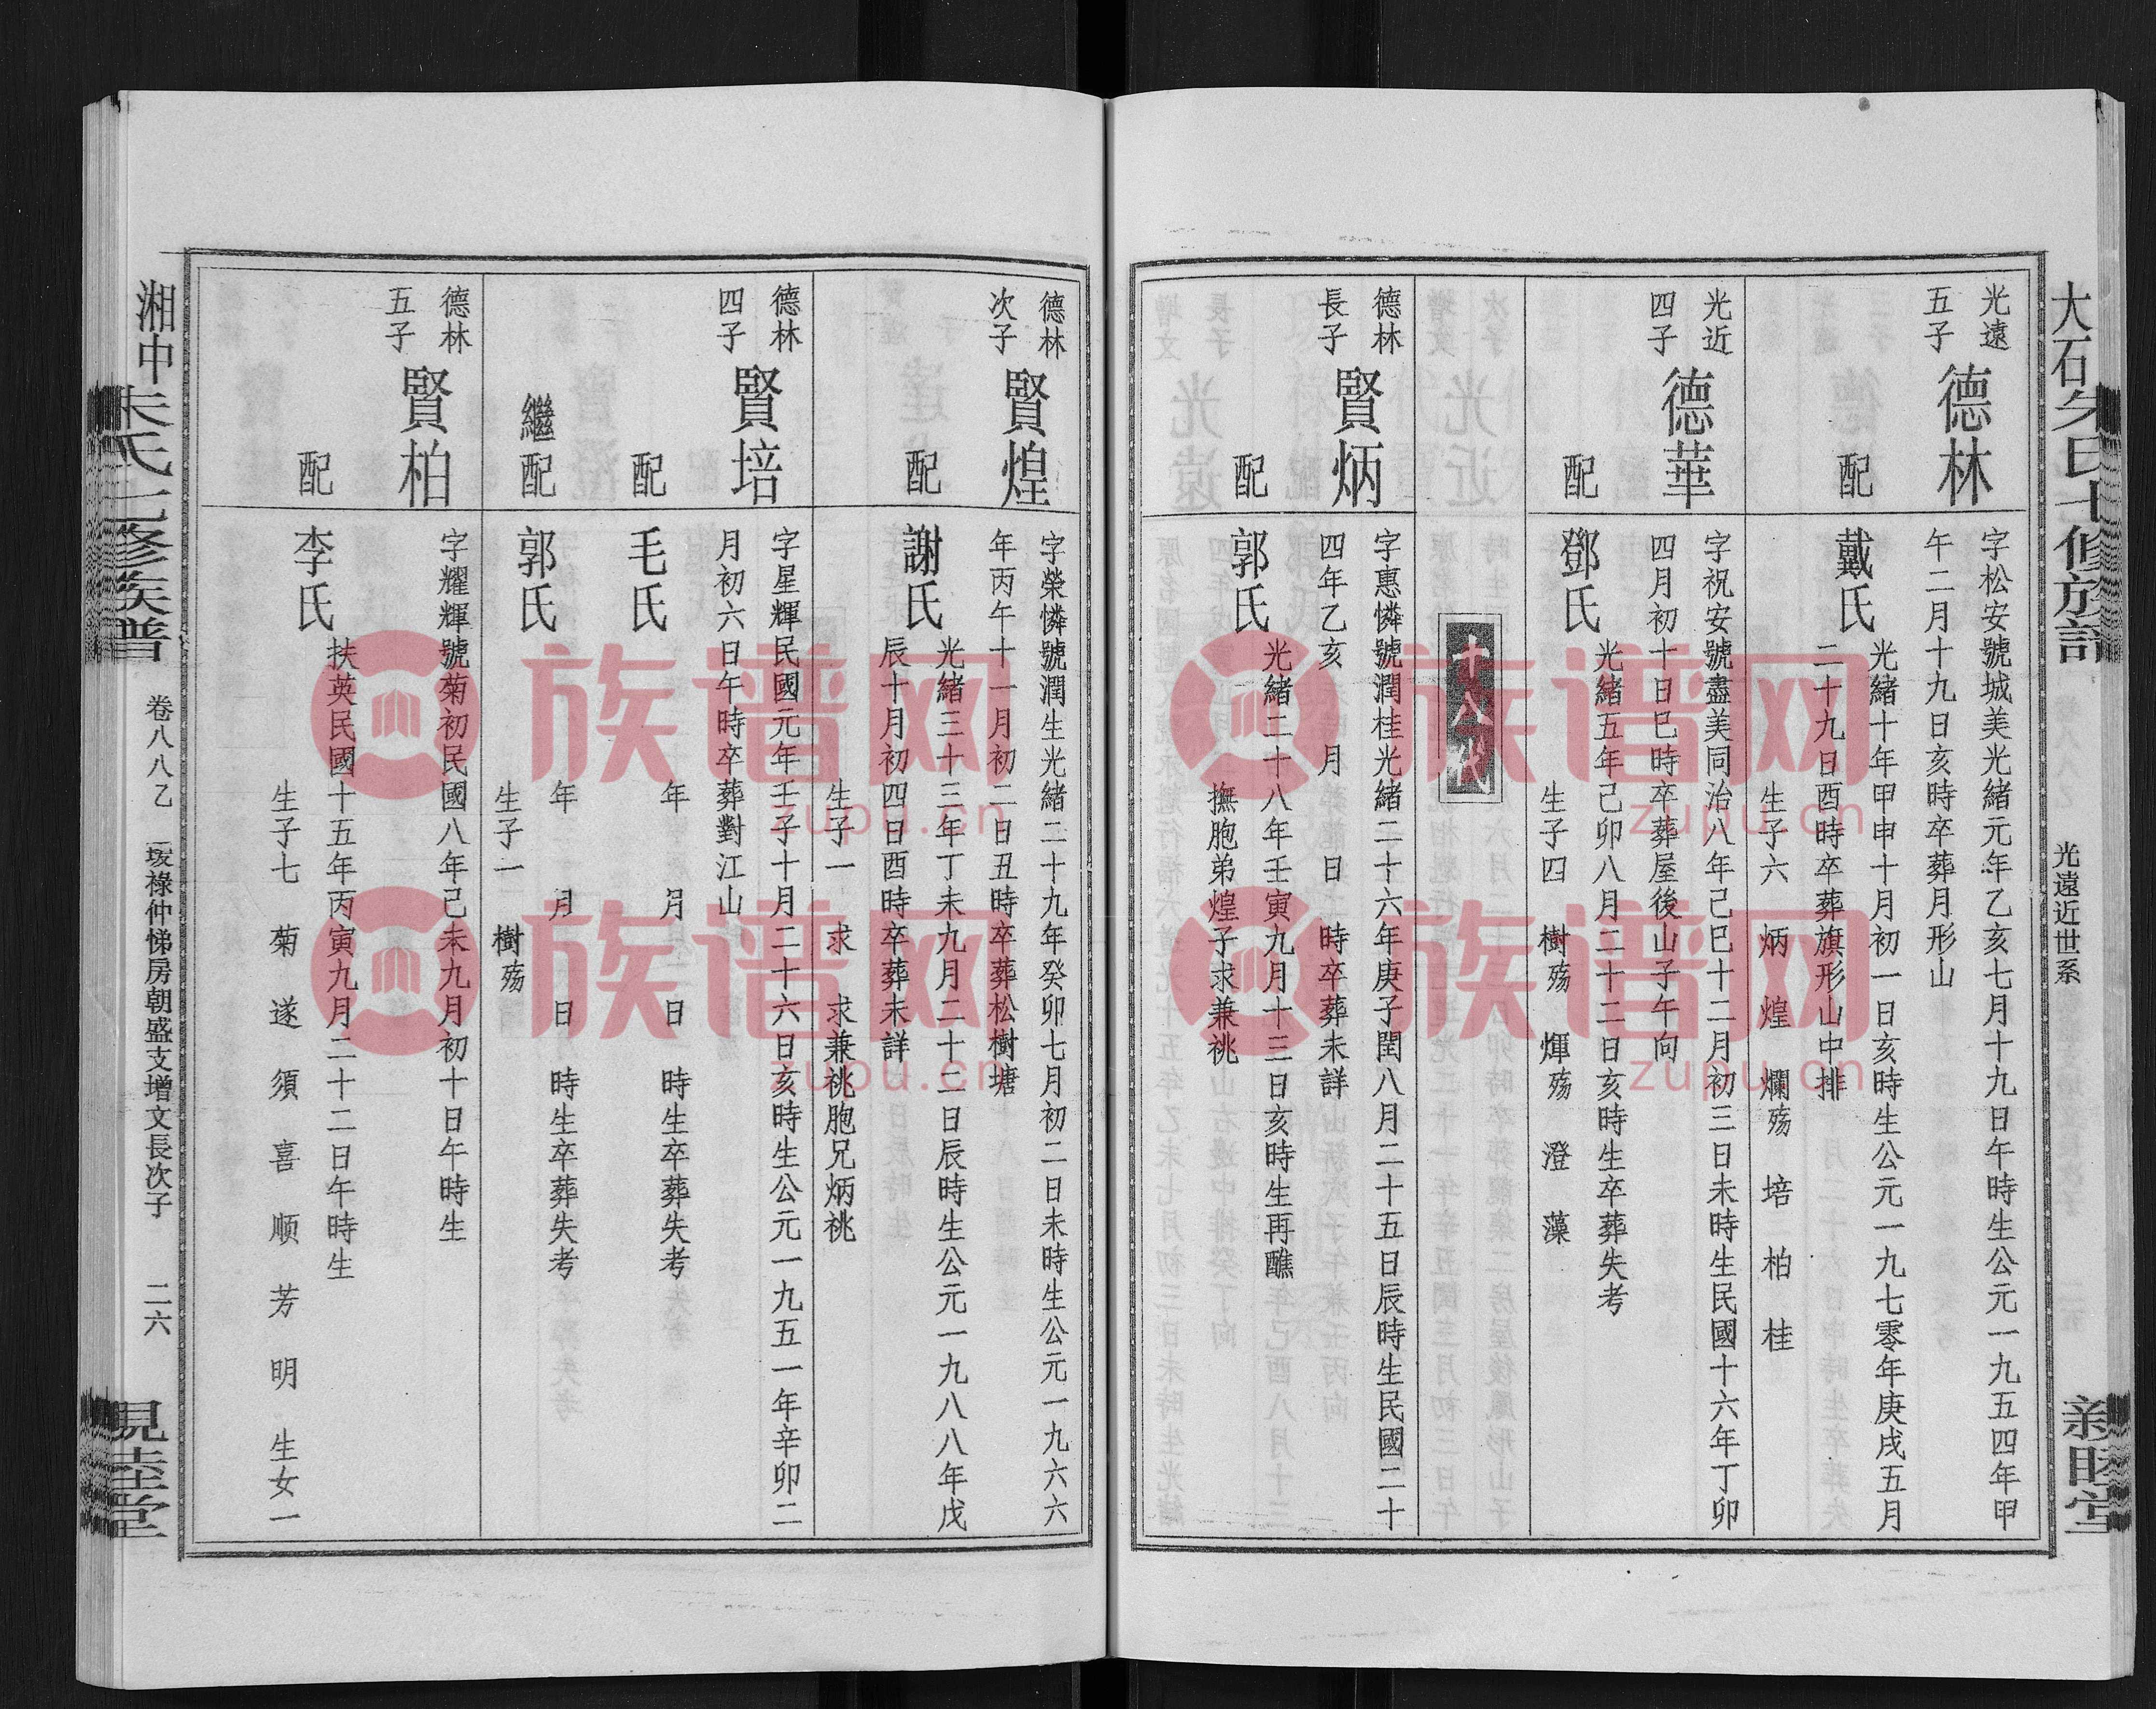 大石朱氏七修族譜
光遠近世系
親睦堂
光遠
五子
德林
字松安號城美光緒元年乙亥七月十九日午時生公元一九五四年甲
午二月十九日亥時卒葬月形山
配
戴氏
光緒十年甲申十月初一日亥時生公元一九七零年庚戌五月
二十九日酉時卒葬旗形山中排
生子六 炳 煌 爛殤 培 柏 桂
光近
四子
德華
字祝安號盡美同治八年己巳十二月初三日未時生民國十六年丁卯
四月初十日巳時卒葬屋後山子午向
配
鄧氏
光緒五年己卯八月二十二日亥時生卒葬失考
生子四 樹殤 煇殤 澄 藻
十八代
德林
長子
賢炳
字惠憐號潤桂光緒二十六年庚子閏八月二十五日辰時生民國二十
四年乙亥 月 日 時卒葬未詳
配
郭氏
光緒二十八年壬寅九月十三日亥時生再醮
撫胞弟煌子求兼祧
德林
次子
賢煌
字榮憐號潤生光緒二十九年癸卯七月初二日未時生公元一九六六
年丙午十一月初二日丑時卒葬松樹塘
配
謝氏
光緒三十三年丁未九月二十二日辰時生公元一九八八年戊
辰十月初四日酉時卒葬未詳
生子一 求 求兼祧胞兄炳祧
德林
四子
賢培
字星輝民國元年壬子十月二十六日亥時生公元一九五一年辛卯二
月初六日午時卒葬對江山
配
毛氏
年 月 日 時生卒葬失考
繼配
郭氏
年 月 日 時生卒葬失考
生子一 樹殤
德林
五子
賢柏
字耀輝號菊初民國八年己未九月初十日午時生
配
李氏
扶英民國十五年丙寅九月二十二日午時生
生子七 菊 遂 須 喜 順 芳 明 生女一
湘中朱氏七修族譜
卷八八乙
一堎祿仲悌房朝盛支增文長次子
二六
親睦堂
族谱网
zupu.cn
族谱网
zupu.cn
族谱网
zupu.cn
族谱网
zupu.cn